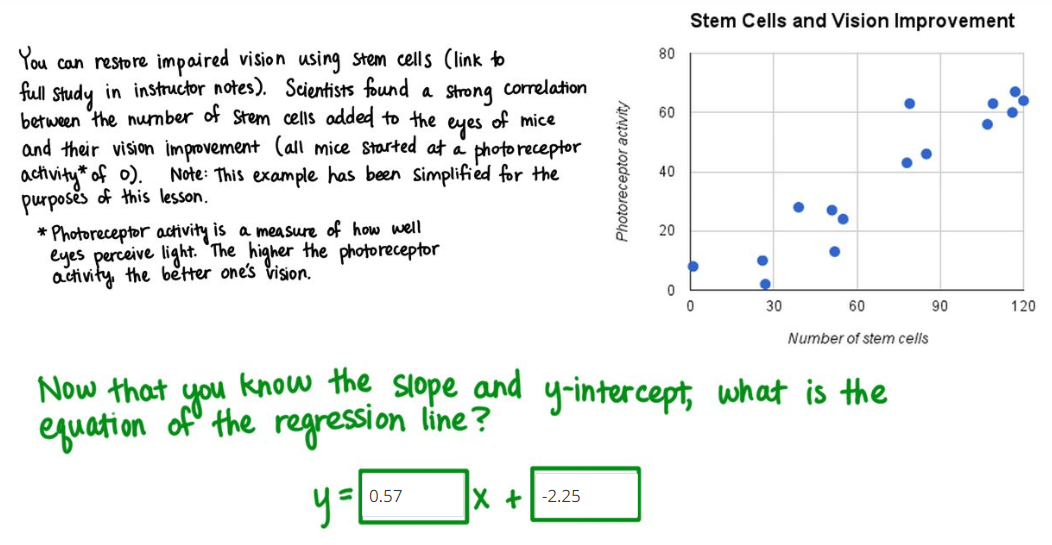 Stem Cells and Vision Improvement
You can restore impaired vision using stem cells (link to
full study in instructor notes). Scientists found a strong correlation
between the number of stem cells added to the eyes of mice
and their vision improvement (all mice started at a photoreceptor
activity* of 0). Note: This example has been simplified for the
purposes of this lesson.
* Photoreceptor activity is a measure of how well
eyes perceive light. The higher the photoreceptor
activity, the better one's vision.
Photoreceptor activity
80
60
40
20
0
0 30 60 90 120
Number of stem cells
Now that you know the slope and y-intercept, what is the
equation of the regression line?
y = 0.57 x + -2.25